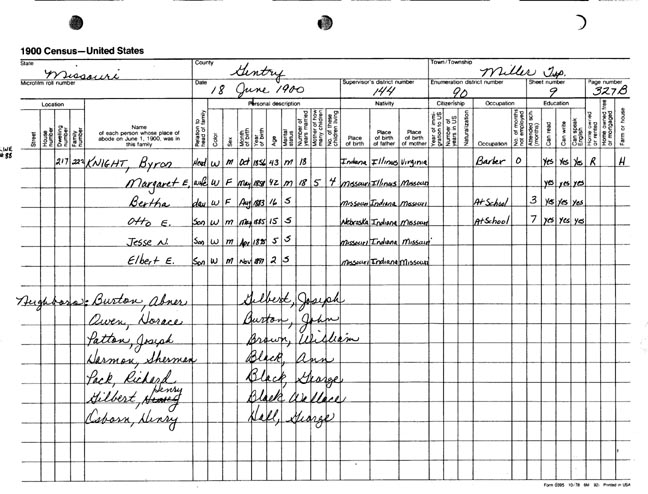 1900 Census—United States
State Missouri County Gentry Town/Township Miller Twp.
Microfilm roll number Date 18 June 1900 Supervisor's district number 144 Enumeration district number 90 Sheet number 9 Page number 327B
Location Personal description Nativity Citizenship Occupation Education
Street House number Dwelling number Family number Name of each person whose place of abode on June 1, 1900, was in this family Relation to head of family Color Sex Month of birth Year of birth Age Marital status Number of years married Mother of how many children No. of these children living Place of birth Place of birth of father Place of birth of mother Year of immigration to US Number of years in US Naturalization Occupation No. of months not employed Attended sch. (months) Can read Can write Can speak English Home owned or rented Home owned free or mortgaged Farm or house
217 222 KNIGHT, Byron Head W M Oct 1856 43 M 18 Indiana Illinois Virginia Barker 0 yes yes yes R H
Margaret E. wife W F May 1858 42 M 18 5 4 Missouri Illinois Missouri yes yes yes
Bertha dau W F Aug 1883 16 S Missouri Indiana Missouri At School 3 yes yes yes
Otto E. Son W M May 1885 15 S Nebraska Indiana Missouri At School 7 yes yes yes
Jesse N. Son W M Apr 1895 5 S Missouri Indiana Missouri
Elbert E. Son W M Nov 1897 2 S Missouri Indiana Missouri
Neighbors: Burton, Abner Gilbert, Joseph
Owen, Horace Burton, John
Patton, Joseph Brown, William
Harmon, Sherman Black, Ann
Pack, Richard Black, George
Gilbert, Henry Black Wallace
Osborn, Henry Hall, George
Form 0395 10/78 Printed in USA